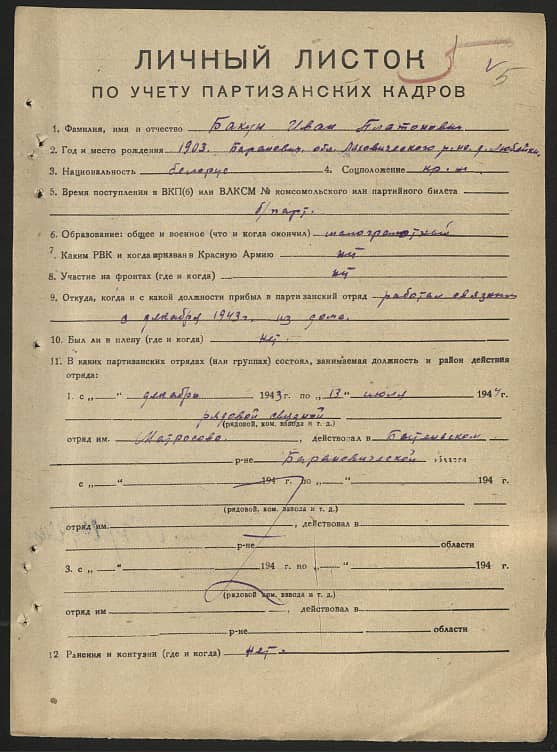 5
√5
ЛИЧНЫЙ ЛИСТОК
ПО УЧЕТУ ПАРТИЗАНСКИХ КАДРОВ
1. Фамилия, имя и отчество Бакун Иван Платонович
2. Год и место рождения 1903. Баранович. обл. Ляховического р-на. д. Любейки
3. Национальность белорус 4. Соцположение кр-н
5. Время поступления в ВКП(б) или ВЛКСМ № комсомольского или партийного билета
б/парт.
6. Образование: общее и военное (что и когда окончил) малограмотный
7. Каким РВК и когда призван в Красную Армию нет
8. Участие на фронтах (где и когда) нет
9. Откуда, когда и с какой должности прибыл в партизанский отряд работал связным
з декабря 1943г. из дома.
10. Был ли в плену (где и когда) нет.
11. В каких партизанских отрядах (или группах) состоял, занимаемая должность и район действия
отряда:
1. с „ “ декабря 1943 г. по „13“ июля 1944 г.
рядовой связной
(рядовой, ком. взвода и т. д.)
отряд им. Матросова, действовал в
р-не Барановической области
с „ “ 194 г. по „ “ 194 г.
(рядовой, ком. взвода и т. д.)
отряд им. , действовал в
р-не области
3. с „ “ 194 г. по „ “ 194 г.
(рядовой ком. взвода и т. д.)
отряд им , действовал в
р-не области
12 Ранения и контузии (где и когда) нет.